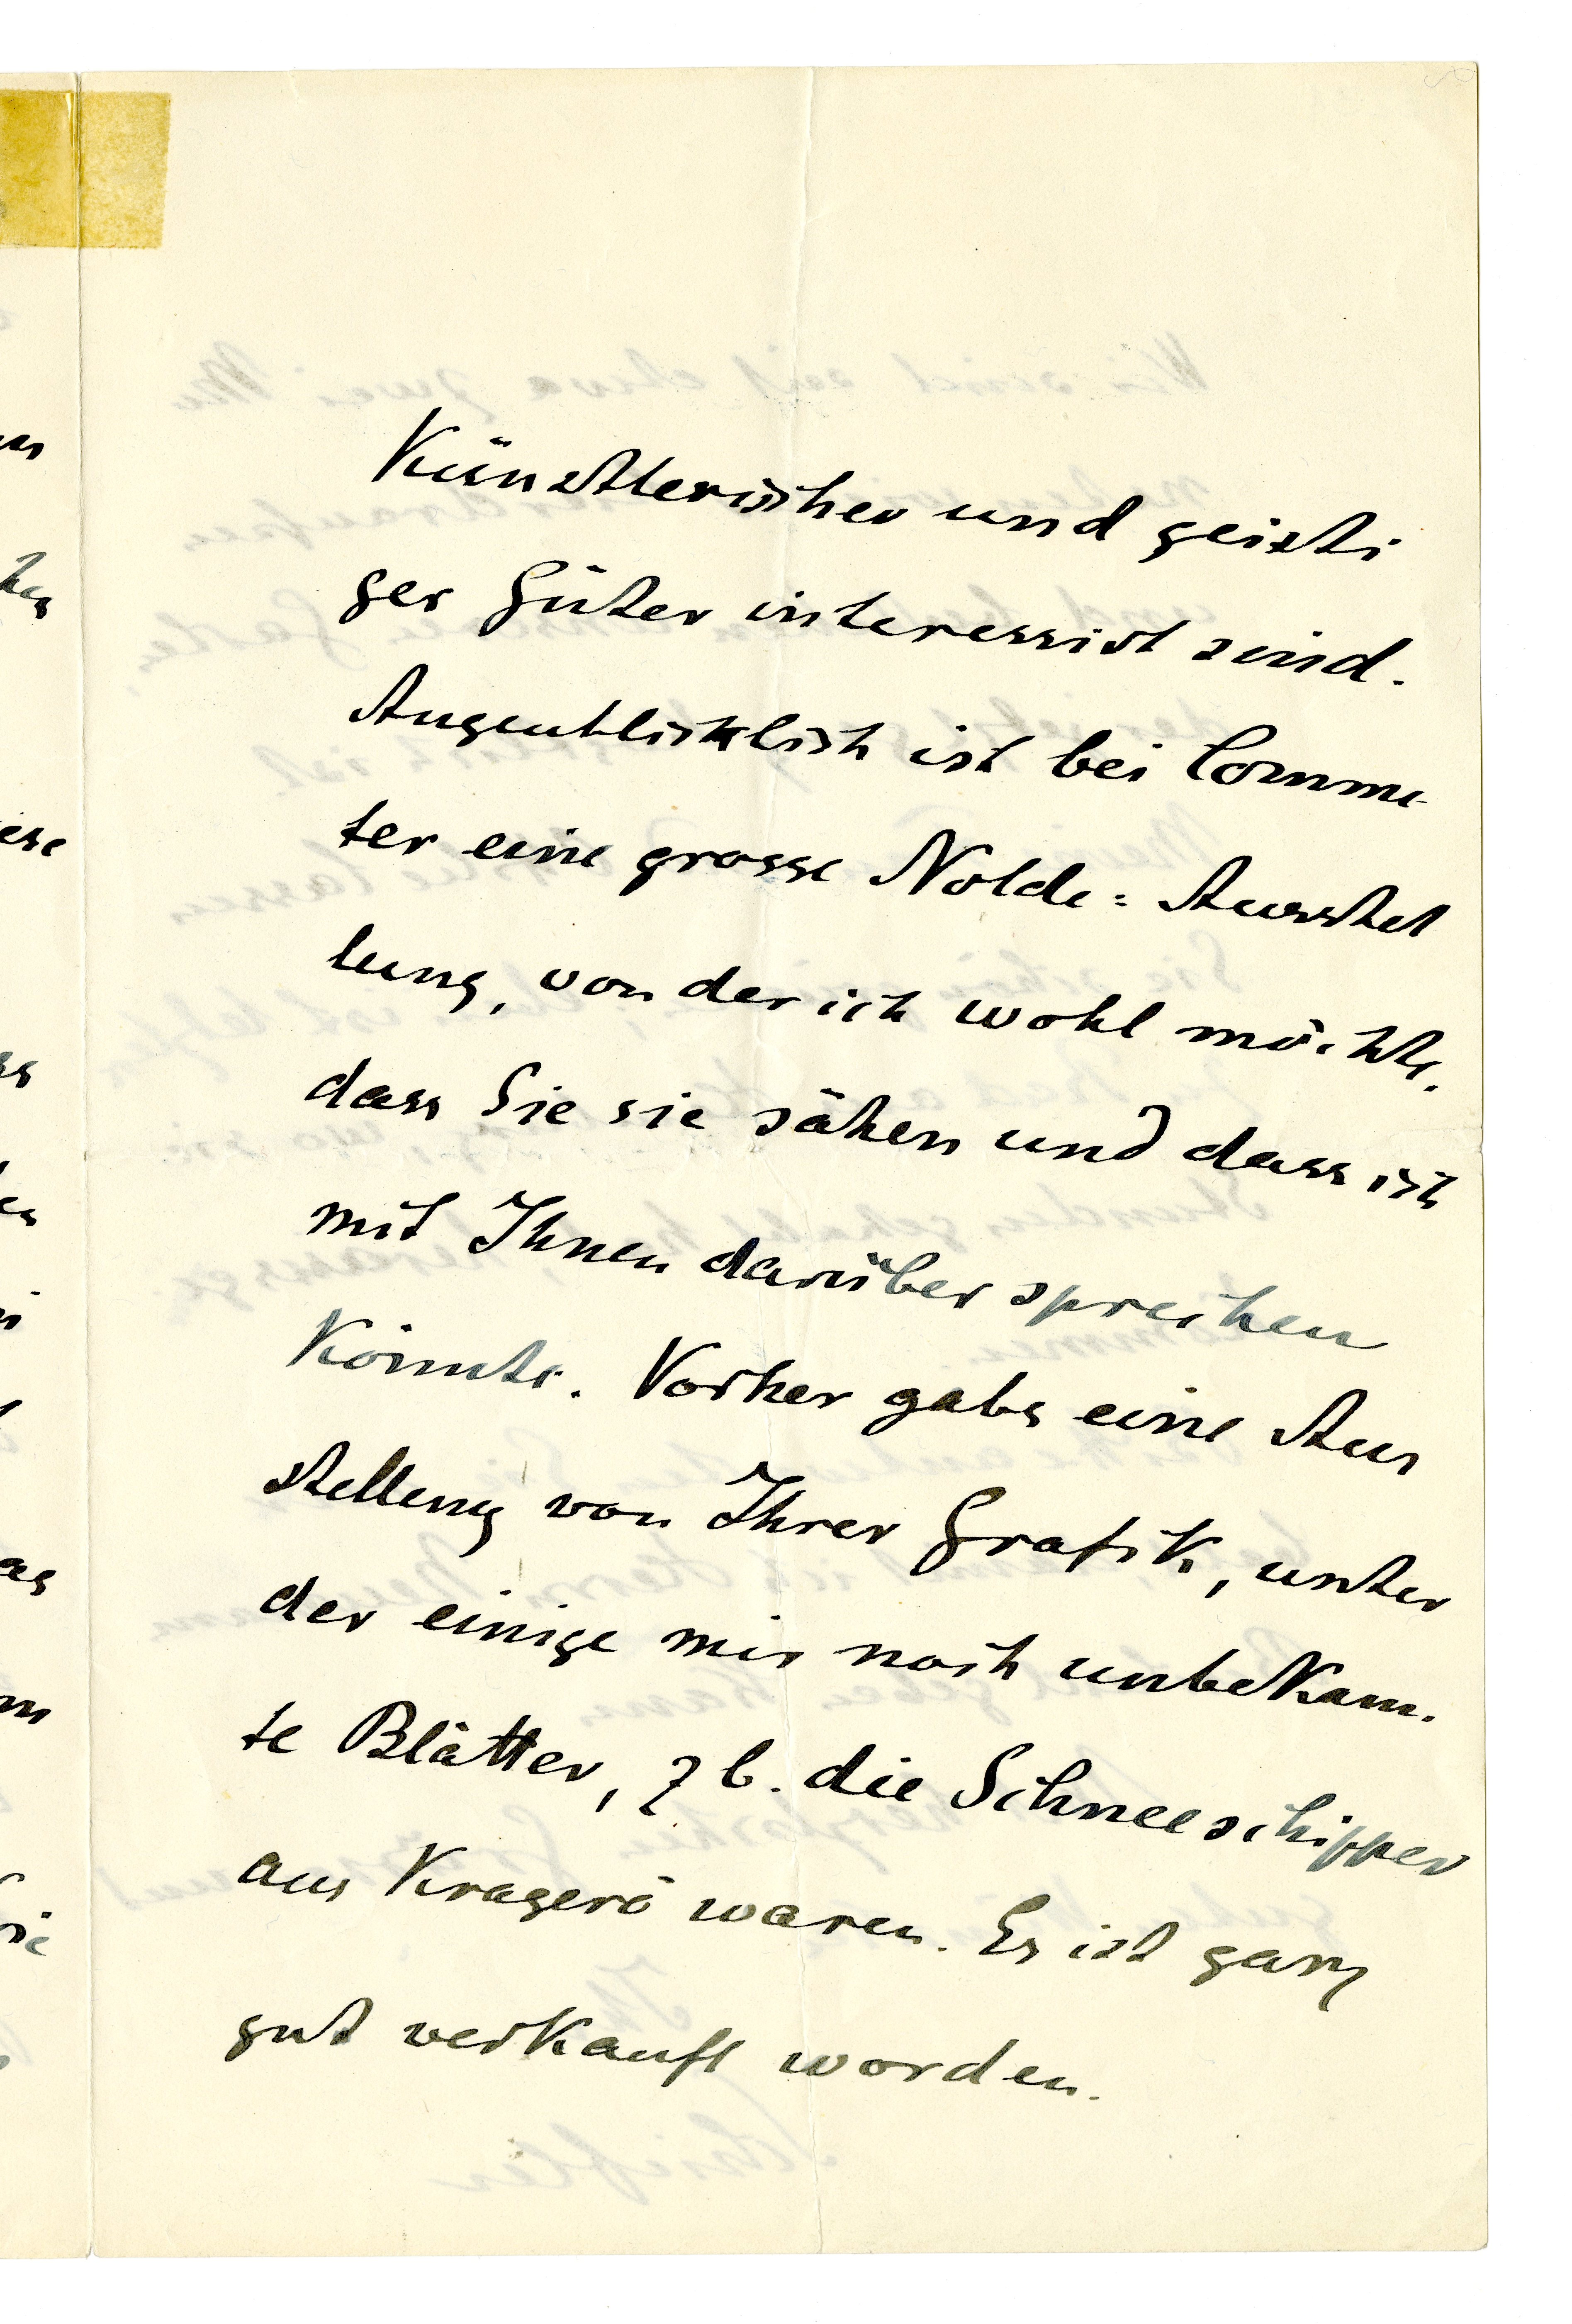 künstlerischer und geisti
ger Güter interessirt sind.
Augenblicklich ist bei Comme
ter eine grosse Nolde=Ausstel
lung, von der ich wohl möchte,
dass Sie sie sähen und dass ich
mit Ihnen darüber sprechen
könnte. Vorher gabs eine Aus
stellung von Ihrer Grafik, unter
der einige mir noch unbekann-
te Blätter, z b. die Schneeschipper
aus Kragerö waren. Es ist ganz
gut verkauft worden.